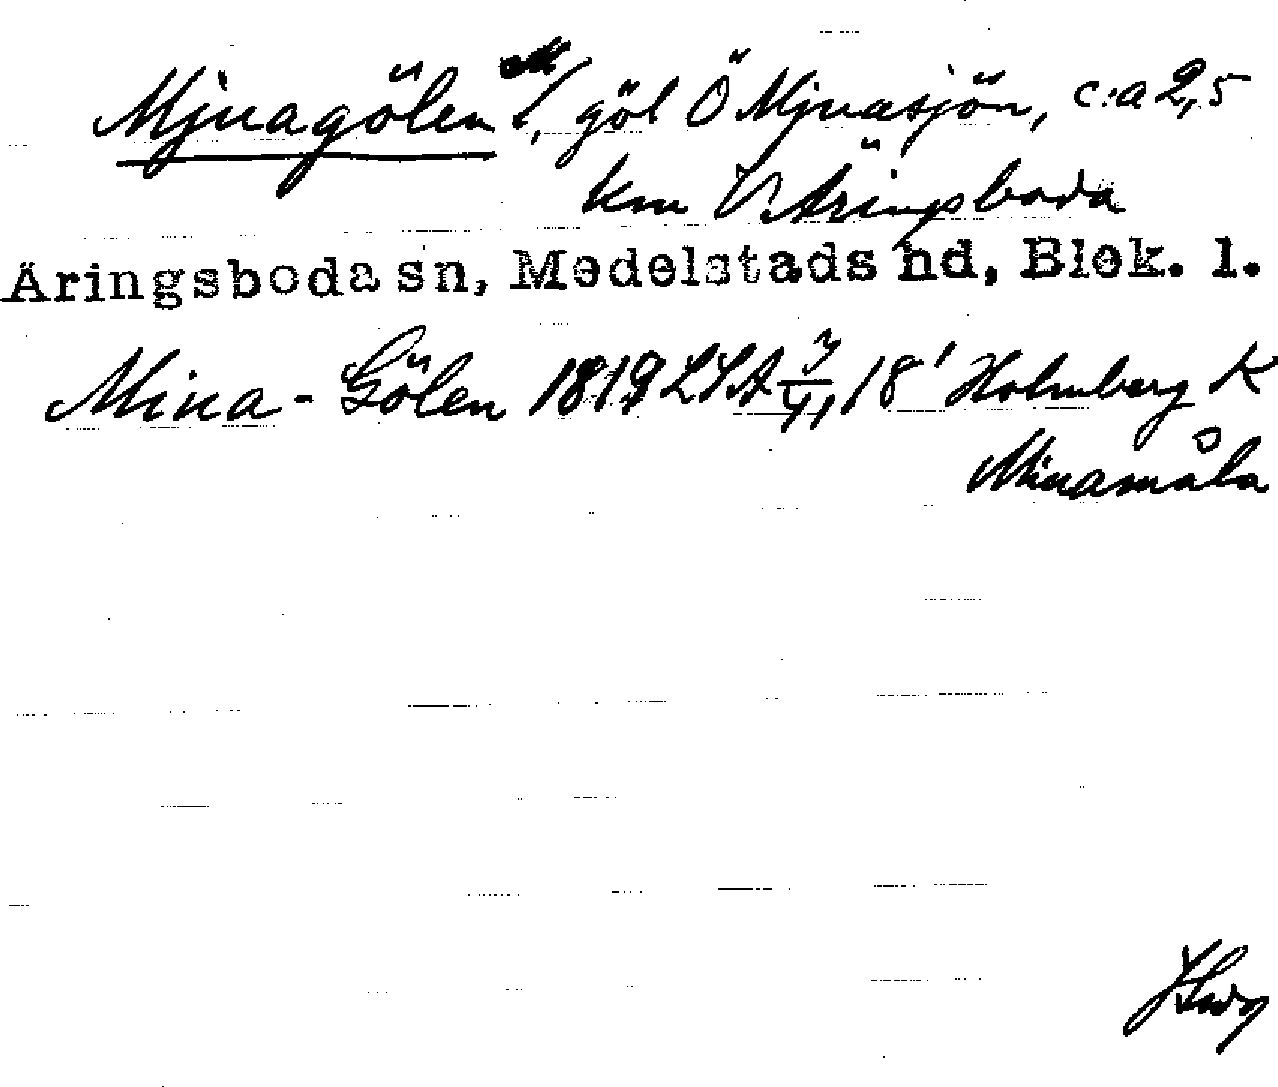 Mjnagölen /, göl Ö Mjnasjön, c:a 2,5
km V Äringsboda
Äringsboda sn, Medelstads hd, Blek. l.
Mina-Gölen 1819 LSA 7/VI, 18' Holmberg K
Minamåla